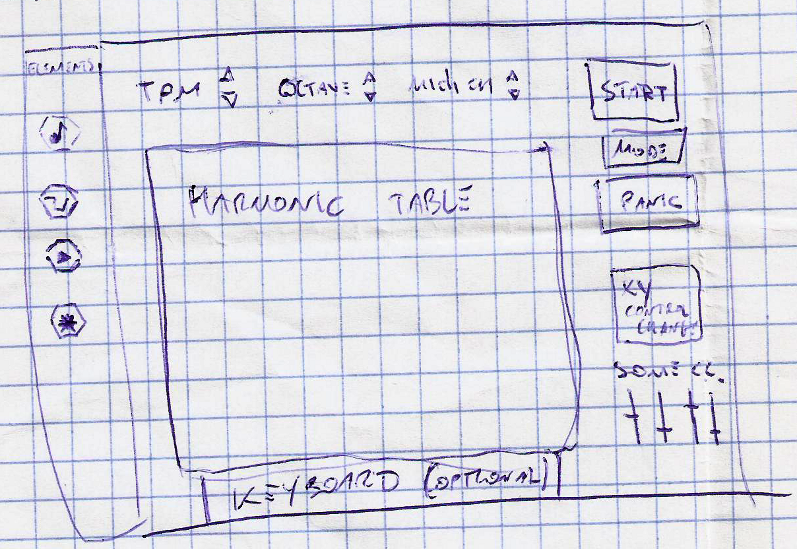 ELEMENTS
TPM
OCTAVE
MIDI CH
START
MODE
PANIC
HARMONIC TABLE
XY
CONTROL
CHANGE
SOME CC.
KEYBOARD (OPTIONAL)